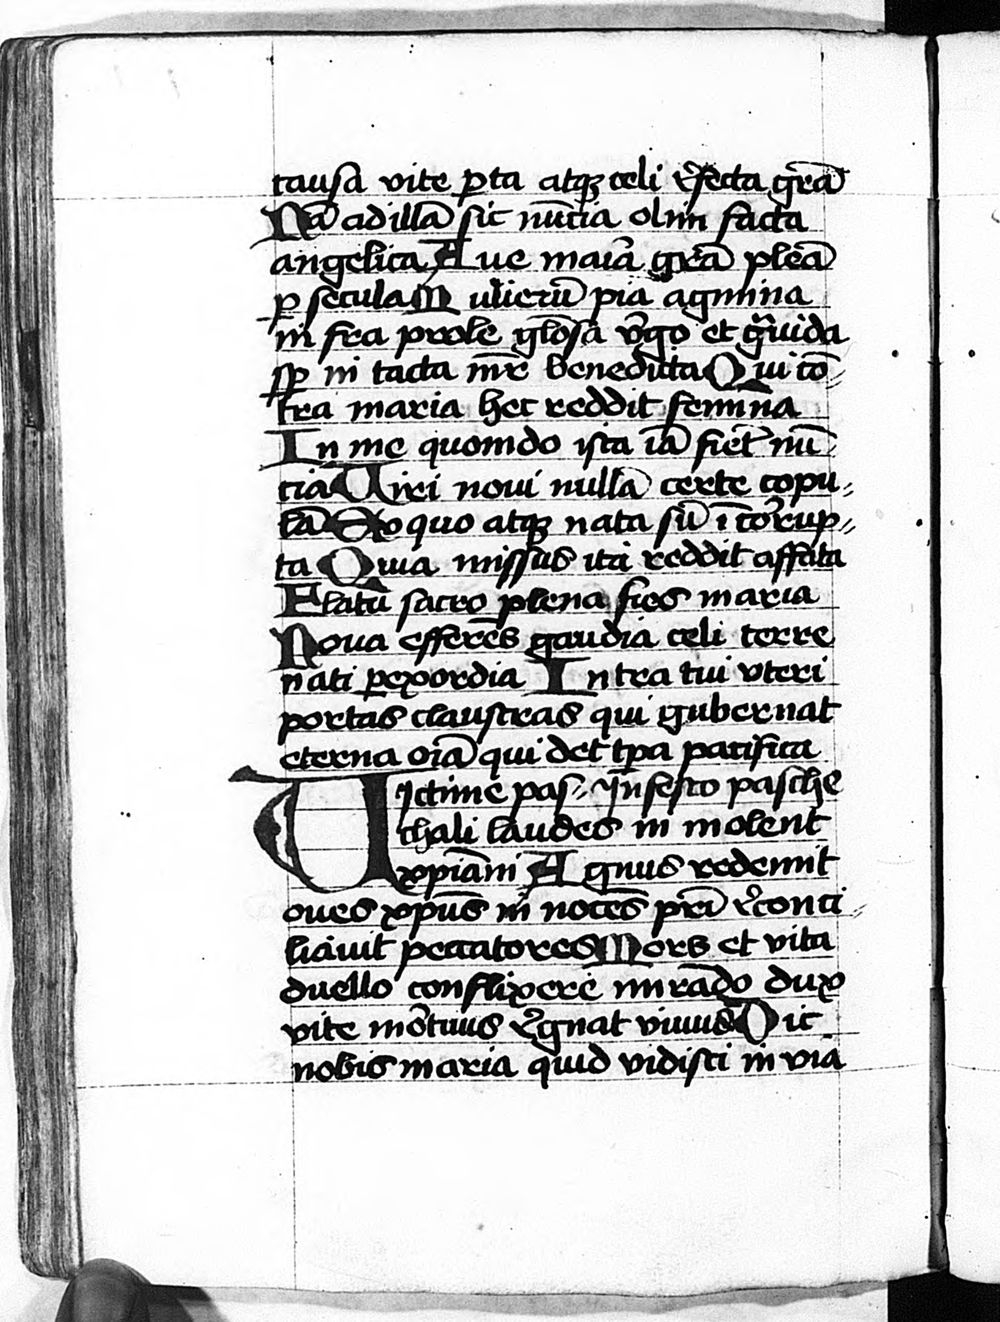 causa vite ꝑta atqꝫ celi r̾fecta gr̄a
Nā ad illā sic nūcia olim facta
angelica Aue maīa gr̄a pleā
ꝑ secula Mulierū pia agmina
in fra prole gl̄osa v̾go et gͣuida
sꝑ in tacta mr̄e benedicta Qui cō⸗
tra maria hec reddit femīna
In me quomdo ista iā fiet nū⸗
cia Uiri noui nullā certe copu⸗
lā Ex quo atqꝫ nata sū ī cor̾rup⸗
ta Quia missus ita reddit affata
Elatū sacro plena fies maria
Noua efferēs gaudia celi terre
nati ꝑexordia Intra tui vteri
portas claustras qui gubernat
eterna oīa qui det tp̄a pacifica
Uictime pas⸗ In festo pasche
chali laudes in molent
xp̄iāni Agnus redemit
oues xp̄us īn nocēs pr̄i r̾conci⸗
liauit peccatores Mors et vita
duello conflixere mirādo dux
vite mor̾tuus r̾gnat viuus Dic
nobis maria quid vidisti in via